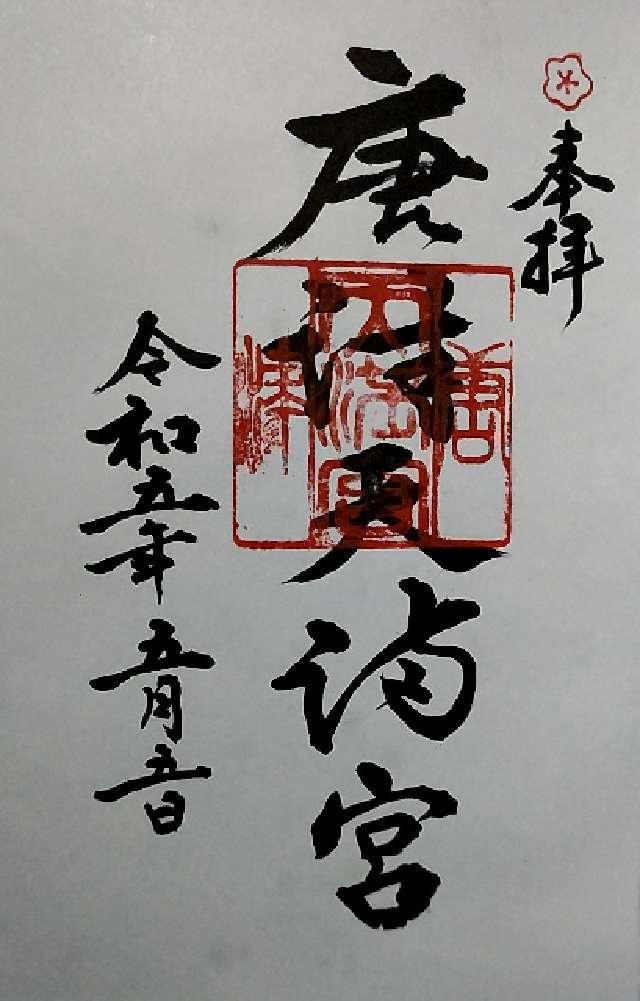 奉拝
唐津天満宮
令和五年五月五日